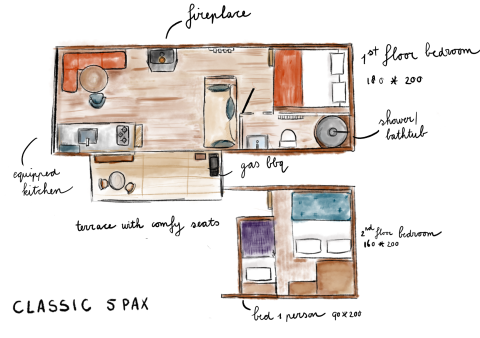 fireplace
1st floor bedroom
180 * 200
shower/
bathtub
equipped
kitchen
gas bbq
terrace with comfy seats
2nd floor bedroom
160 * 200
CLASSIC 5 PAX
bed 1 person 90x200